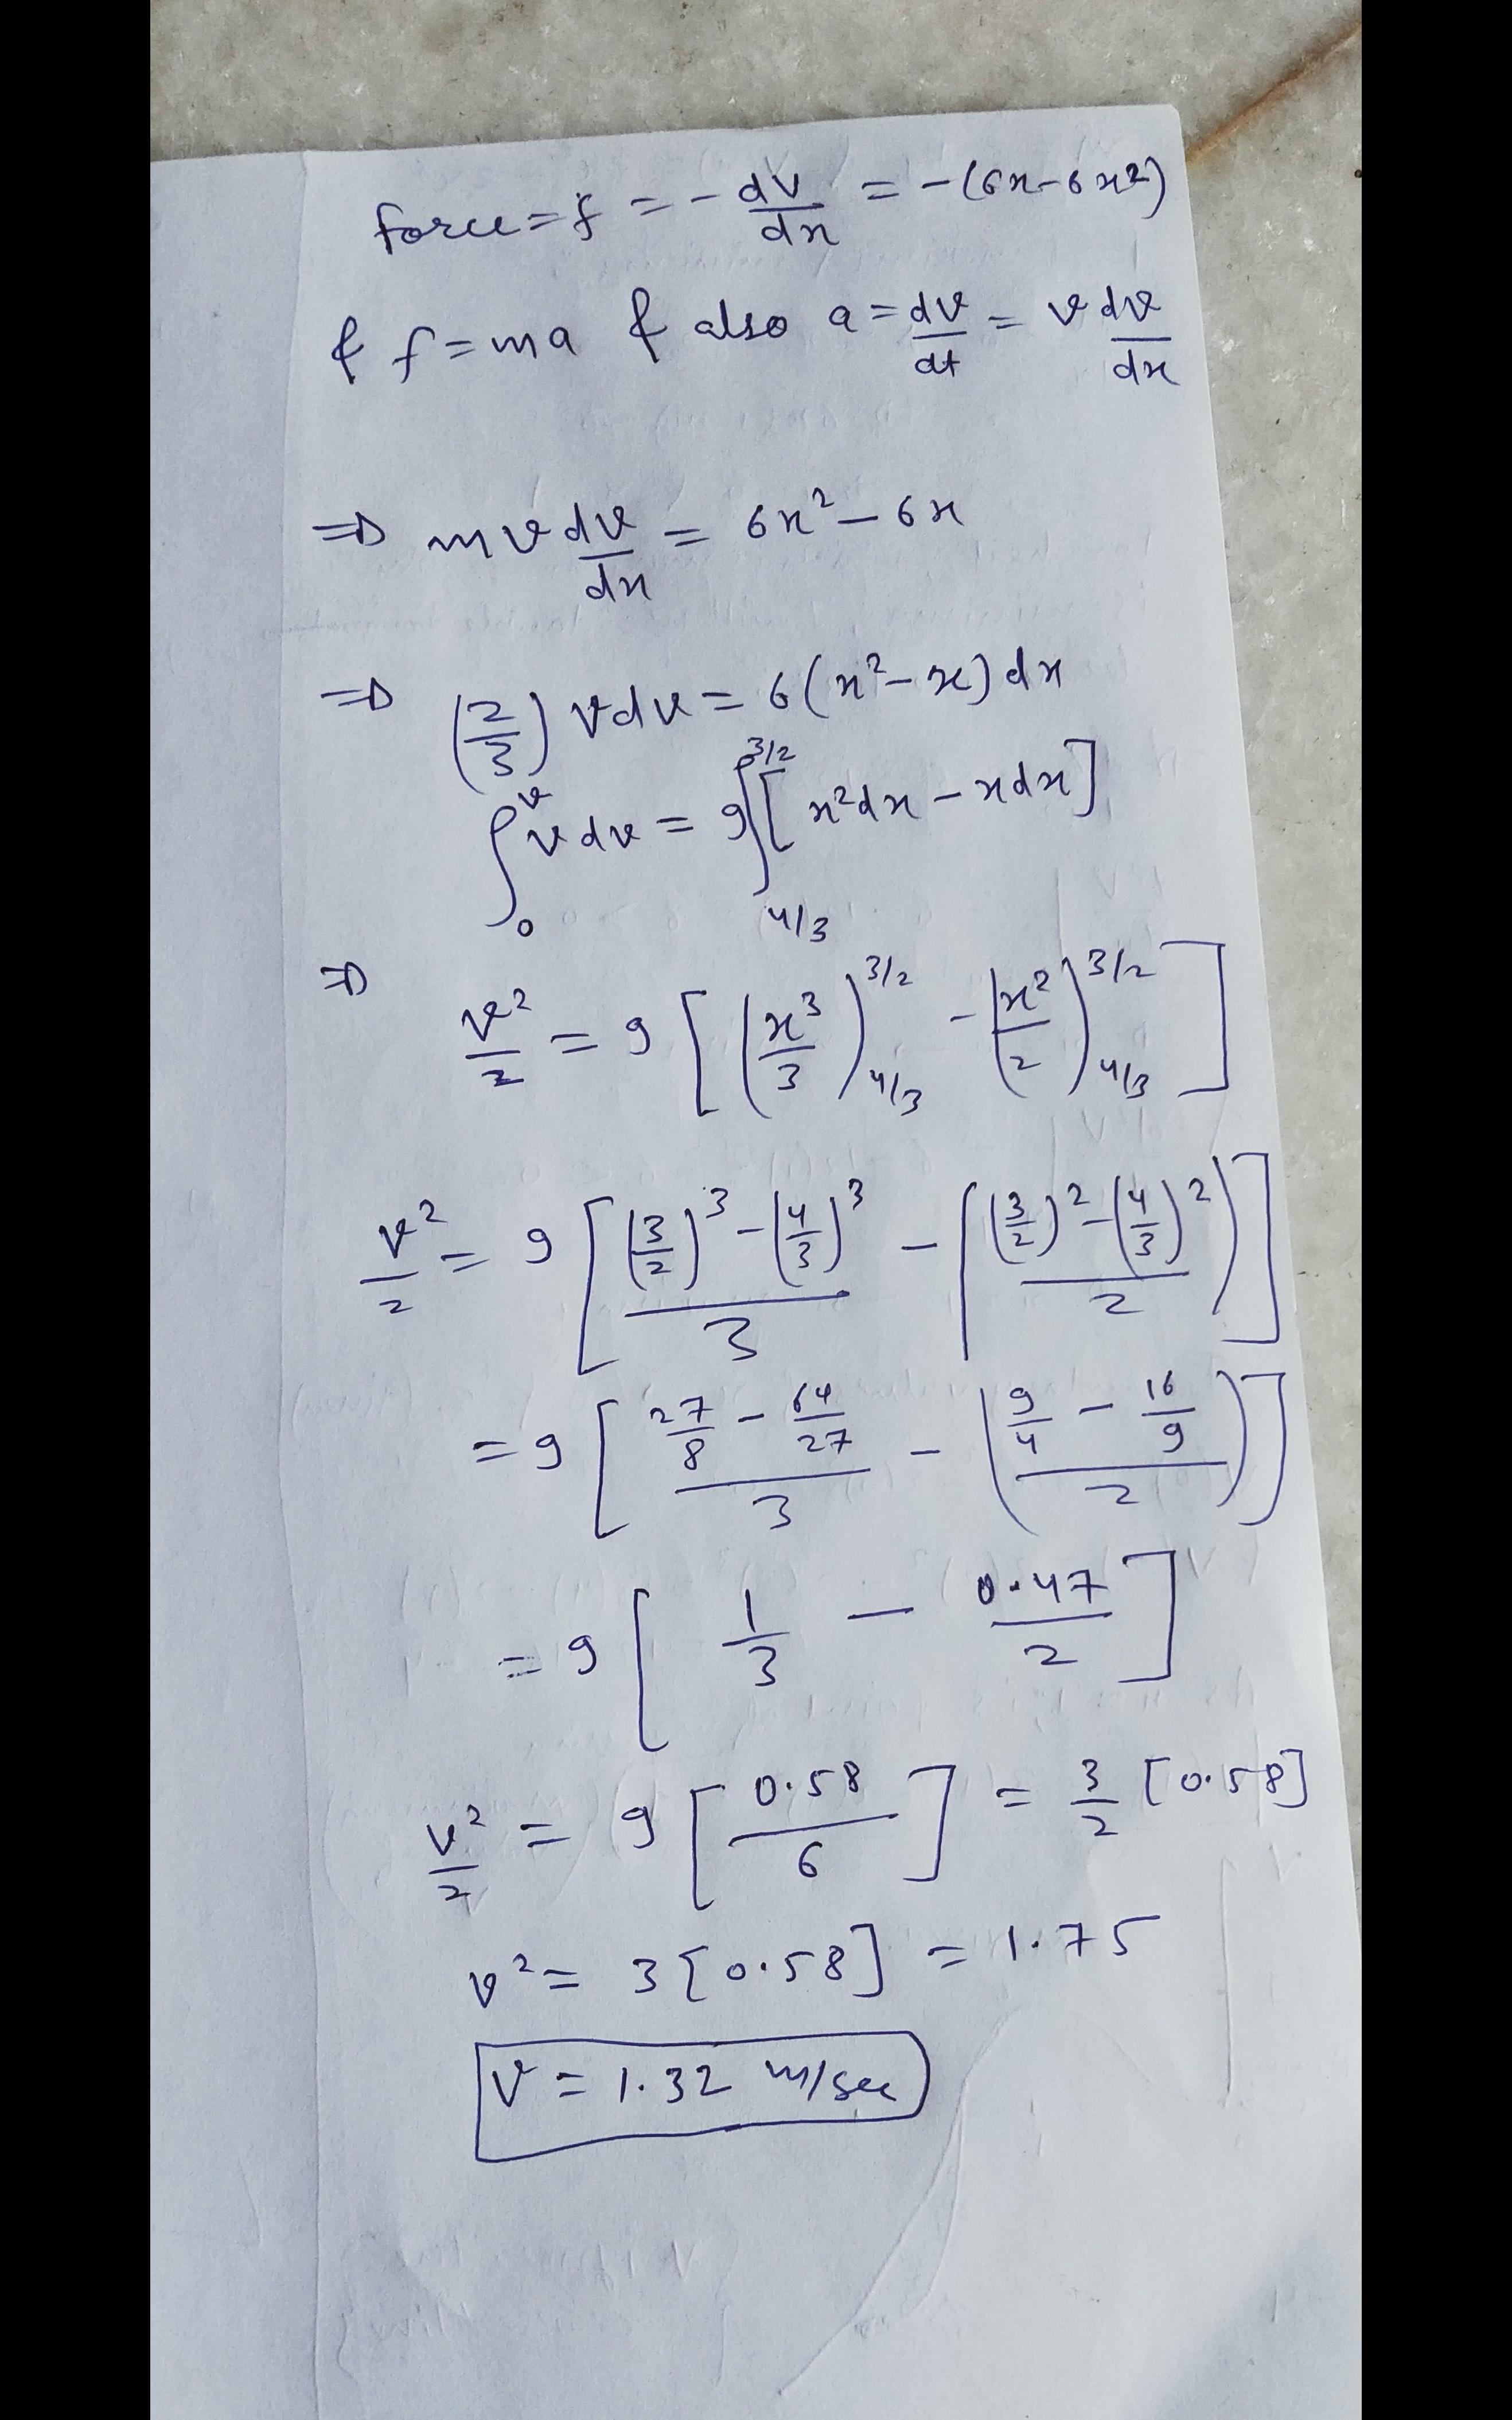 force = f = - dV/dx = - (6x - 6x²)
& f = ma & also a = dv/dt = v dv/dx
⇒ m v dv/dx = 6x² - 6x
⇒ (2/3) v dv = 6(x² - x) dx
∫₀^v v dv = 9 ∫_{4/3}^{3/2} [x² dx - x dx]
⇒ v²/2 = 9 [(x³/3)_{4/3}^{3/2} - (x²/2)_{4/3}^{3/2}]
v²/2 = 9 [((3/2)³ - (4/3)³)/3 - (((3/2)² - (4/3)²)/2)]
= 9 [(27/8 - 64/27)/3 - ((9/4 - 16/9)/2)]
= 9 [1/3 - 0.47/2]
v²/2 = 9 [0.58/6] = 3/2 [0.58]
v² = 3 [0.58] = 1.75
V = 1.32 m/sec